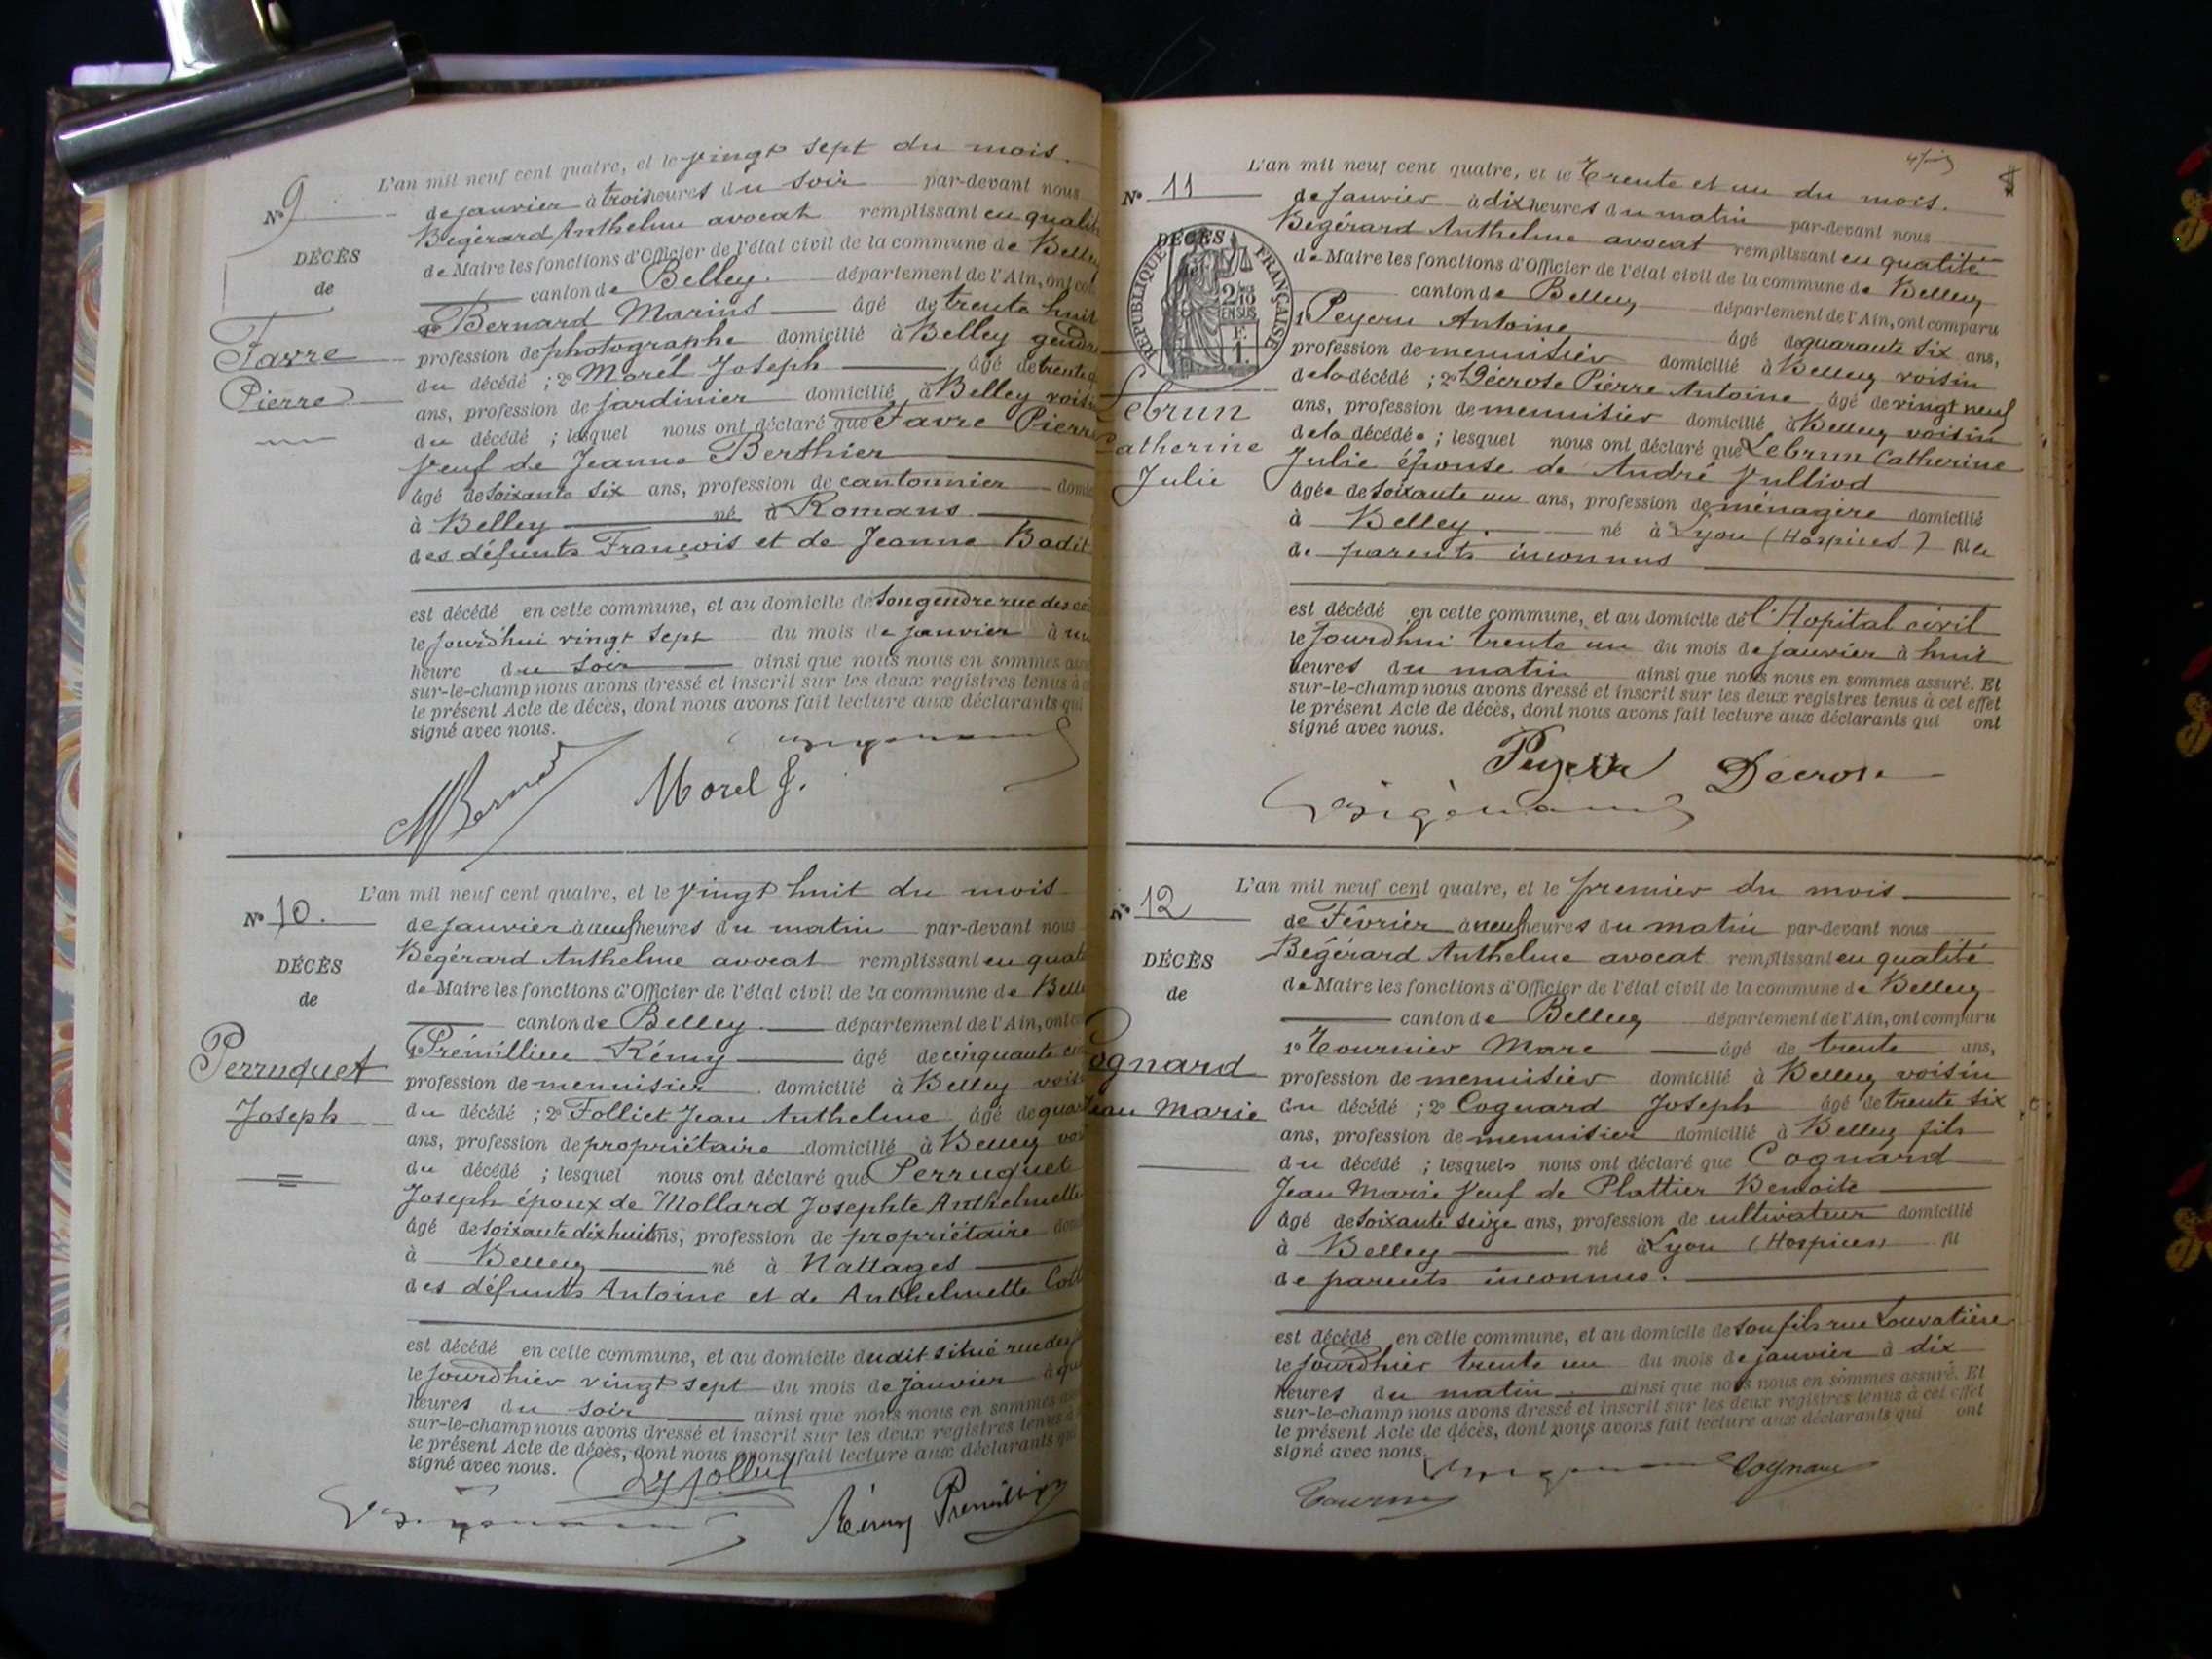 L'an mil neuf cent quatre, et le vingt sept du mois
N° 9
de janvier à trois heures du soir par-devant nous
Bégérard Anthelme avocat remplissant en qualité
DÉCÈS
de Maire les fonctions d'Officier de l'état civil de la commune de Belley
de
canton de Belley. département de l'Ain, ont
1° Bernard Marius âgé de trente huit
Favre
profession de photographe domicilié à Belley gendre
Pierre
du décédé ; 2° Morel Joseph âgé de trente
ans, profession de jardinier domicilié à Belley voisin
du décédé ; lesquel nous ont déclaré que Favre Pierre
veuf de Jeanne Berthier
âgé de soixante six ans, profession de cantonnier
à Belley né à Romans
des défunts François et de Jeanne Badit
est décédé en cette commune, et au domicile de son gendre rue des
le jourd'hui vingt sept du mois de janvier à
heure du soir ainsi que nous nous en sommes
sur-le-champ nous avons dressé et inscrit sur les deux registres tenus à
le présent Acte de décès, dont nous avons fait lecture aux déclarants qui
signé avec nous.
Morel J.
L'an mil neuf cent quatre, et le vingt huit du mois
N° 10.
de janvier à neuf heures du matin par-devant nous
Bégérard Anthelme avocat remplissant en
DÉCÈS
de Maire les fonctions d'Officier de l'état civil de la commune de
de
canton de Belley. département de l'Ain, ont
1° Prémillieu Rémy âgé de cinquante
Perruquet
profession de menuisier domicilié à Belley
Joseph
du décédé ; 2° Folliet Jean Anthelme âgé de
ans, profession de propriétaire domicilié à Belley
du décédé ; lesquel nous ont déclaré que Perruquet
Joseph époux de Mollard Josephte Anthelmette
âgé de soixante dix huit ans, profession de propriétaire
à Belley né à Nattages
des défunts Antoine et de Anthelmette
est décédé en cette commune, et au domicile dudit situé rue des
le jourd'hier vingt sept du mois de janvier à
heures du soir ainsi que nous nous en sommes
sur-le-champ nous avons dressé et inscrit sur les deux registres tenus à
le présent Acte de décès, dont nous avons fait lecture aux déclarants
signé avec nous.
Rémy
L'an mil neuf cent quatre, et le Trente et un du mois.
N° 11
de Janvier à dix heures du matin par-devant nous
Bégérard Anthelme avocat remplissant en qualité
de Maire les fonctions d'Officier de l'état civil de la commune de Belley
DÉCÈS
RÉPUBLIQUE FRANÇAISE
2/10 EN SUS
F. 1.
canton de Belley département de l'Ain, ont comparu
1° Peyeru Antoine âgé de quarante six ans,
profession de menuisier domicilié à Belley voisin
de la décédé ; 2° Décrose Pierre Antoine âgé de vingt neuf
Lebrun
ans, profession de menuisier domicilié à Belley voisin
Catherine
de la décédée ; lesquel nous ont déclaré que Lebrun Catherine
Julie
Julie épouse de André Julliod
âgée de soixante un ans, profession de ménagère domicilié
à Belley. né à Lyon (Hospices) fille
de parents inconnus
est décédé en cette commune, et au domicile de l'Hopital civil
le jourd'hui trente un du mois de janvier à huit
heures du matin ainsi que nous nous en sommes assuré. Et
sur-le-champ nous avons dressé et inscrit sur les deux registres tenus à cet effet
le présent Acte de décès, dont nous avons fait lecture aux déclarants qui ont
signé avec nous.
Décrose
L'an mil neuf cent quatre, et le premier du mois
N° 12
de Février à neuf heures du matin par-devant nous
Bégérard Anthelme avocat remplissant en qualité
DÉCÈS
de Maire les fonctions d'Officier de l'état civil de la commune de Belley
de
canton de Belley département de l'Ain, ont comparu
1° Tournier Marc âgé de trente ans,
Cognard
profession de menuisier domicilié à Belley voisin
Jean Marie
du décédé ; 2° Cognard Joseph âgé de trente six
ans, profession de menuisier domicilié à Belley fils
du décédé ; lesquels nous ont déclaré que Cognard
Jean Marie veuf de Plattier Benoite
âgé de soixante seize ans, profession de cultivateur domicilié
à Belley né à Lyon (Hospices) fil
de parents inconnus.
est décédé en cette commune, et au domicile de son fils rue Louvatière
le jourd'hier trente un du mois de janvier à dix
heures du matin ainsi que nous nous en sommes assuré. Et
sur-le-champ nous avons dressé et inscrit sur les deux registres tenus à cet effet
le présent Acte de décès, dont nous avons fait lecture aux déclarants qui ont
signé avec nous.
Cognard